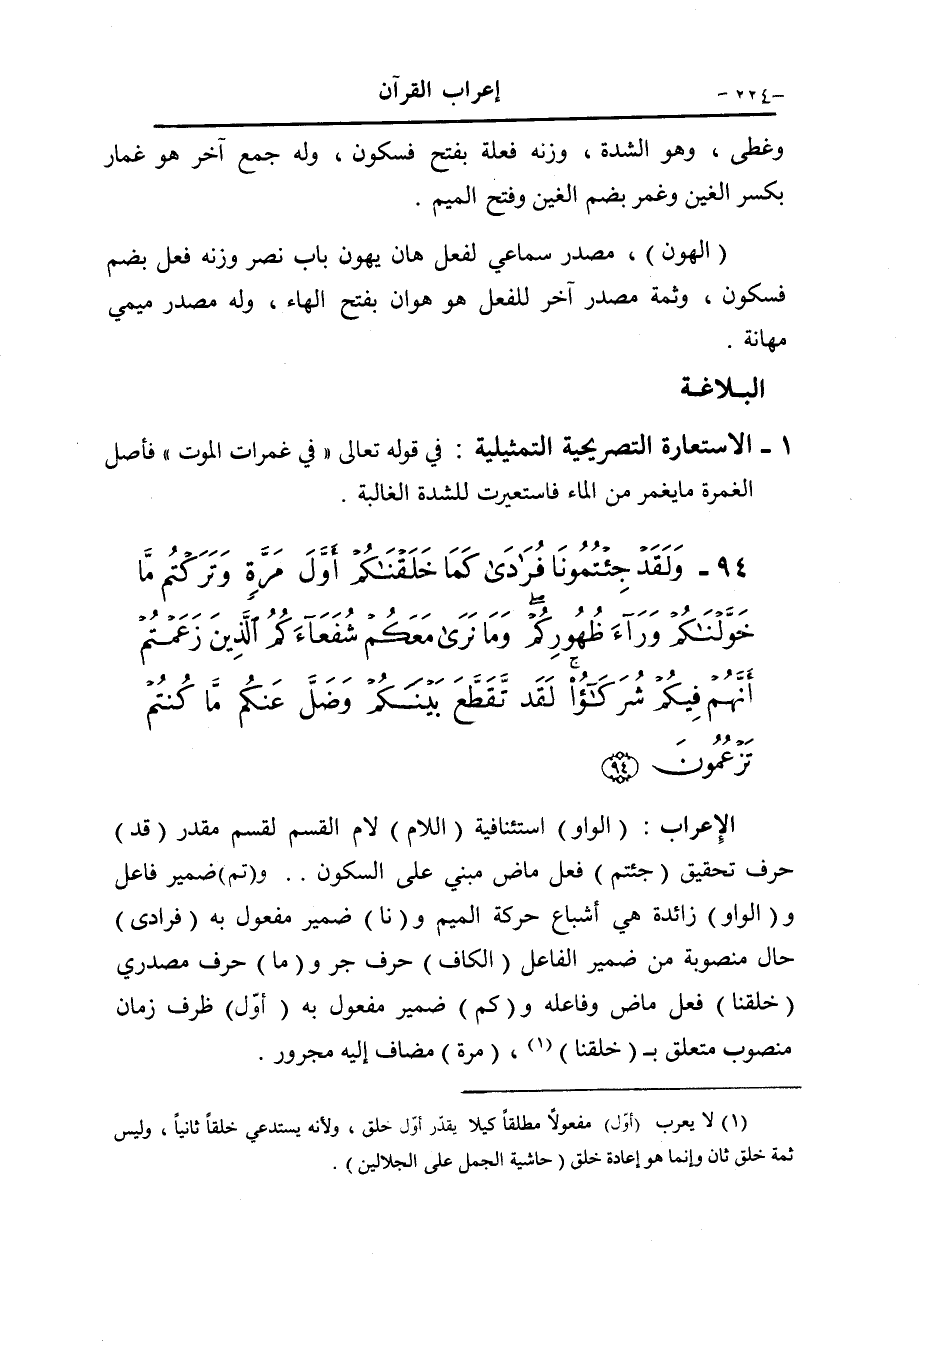 -٢٢٤- إعراب القرآن
وغطى ، وهو الشدة ، وزنه فعلة بفتح فسكون ، وله جمع آخر هو غمار
بكسر الغين وغمر بضم الغين وفتح الميم .
( الهون ) ، مصدر سماعي لفعل هان يهون باب نصر وزنه فعل بضم
فسكون ، وثمة مصدر آخر للفعل هو هوان بفتح الهاء ، وله مصدر ميمي
مهانة .
البـلاغـة
١ ـ الاستعارة التصريحية التمثيلية : في قوله تعالى « في غمرات الموت » فأصل
الغمرة مايغمر من الماء فاستعيرت للشدة الغالبة .
٩٤ ـ وَلَقَدْ جِئْتُمُونَا فُرَٰدَىٰ كَمَا خَلَقْنَٰكُمْ أَوَّلَ مَرَّةٍ وَتَرَكْتُم مَّا
خَوَّلْنَٰكُمْ وَرَآءَ ظُهُورِكُمْ ۖ وَمَا نَرَىٰ مَعَكُمْ شُفَعَآءَكُمُ ٱلَّذِينَ زَعَمْتُمْ
أَنَّهُمْ فِيكُمْ شُرَكَٰٓؤُاْ ۚ لَقَد تَّقَطَّعَ بَيْنَكُمْ وَضَلَّ عَنكُم مَّا كُنتُمْ
تَزْعُمُونَ ﴿٩٤﴾
الإعراب : ( الواو ) استئنافية ( اللام ) لام القسم لقسم مقدر ( قد )
حرف تحقيق ( جئتم ) فعل ماض مبني على السكون . . و(تم)ضمير فاعل
و ( الواو ) زائدة هي أشباع حركة الميم و ( نا ) ضمير مفعول به ( فرادى )
حال منصوبة من ضمير الفاعل ( الكاف ) حرف جر و ( ما ) حرف مصدري
( خلقنا ) فعل ماض وفاعله و ( كم ) ضمير مفعول به ( أوّل) ظرف زمان
منصوب متعلق بـ ( خلقنا ) (١) ، ( مرة ) مضاف إليه مجرور .
(١) لا يعرب (أوّل) مفعولاً مطلقاً كيلا يقدّر أوّل خلق ، ولأنه يستدعي خلقاً ثانياً ، وليس
ثمة خلق ثان وإنما هو إعادة خلق ( حاشية الجمل على الجلالين ) .